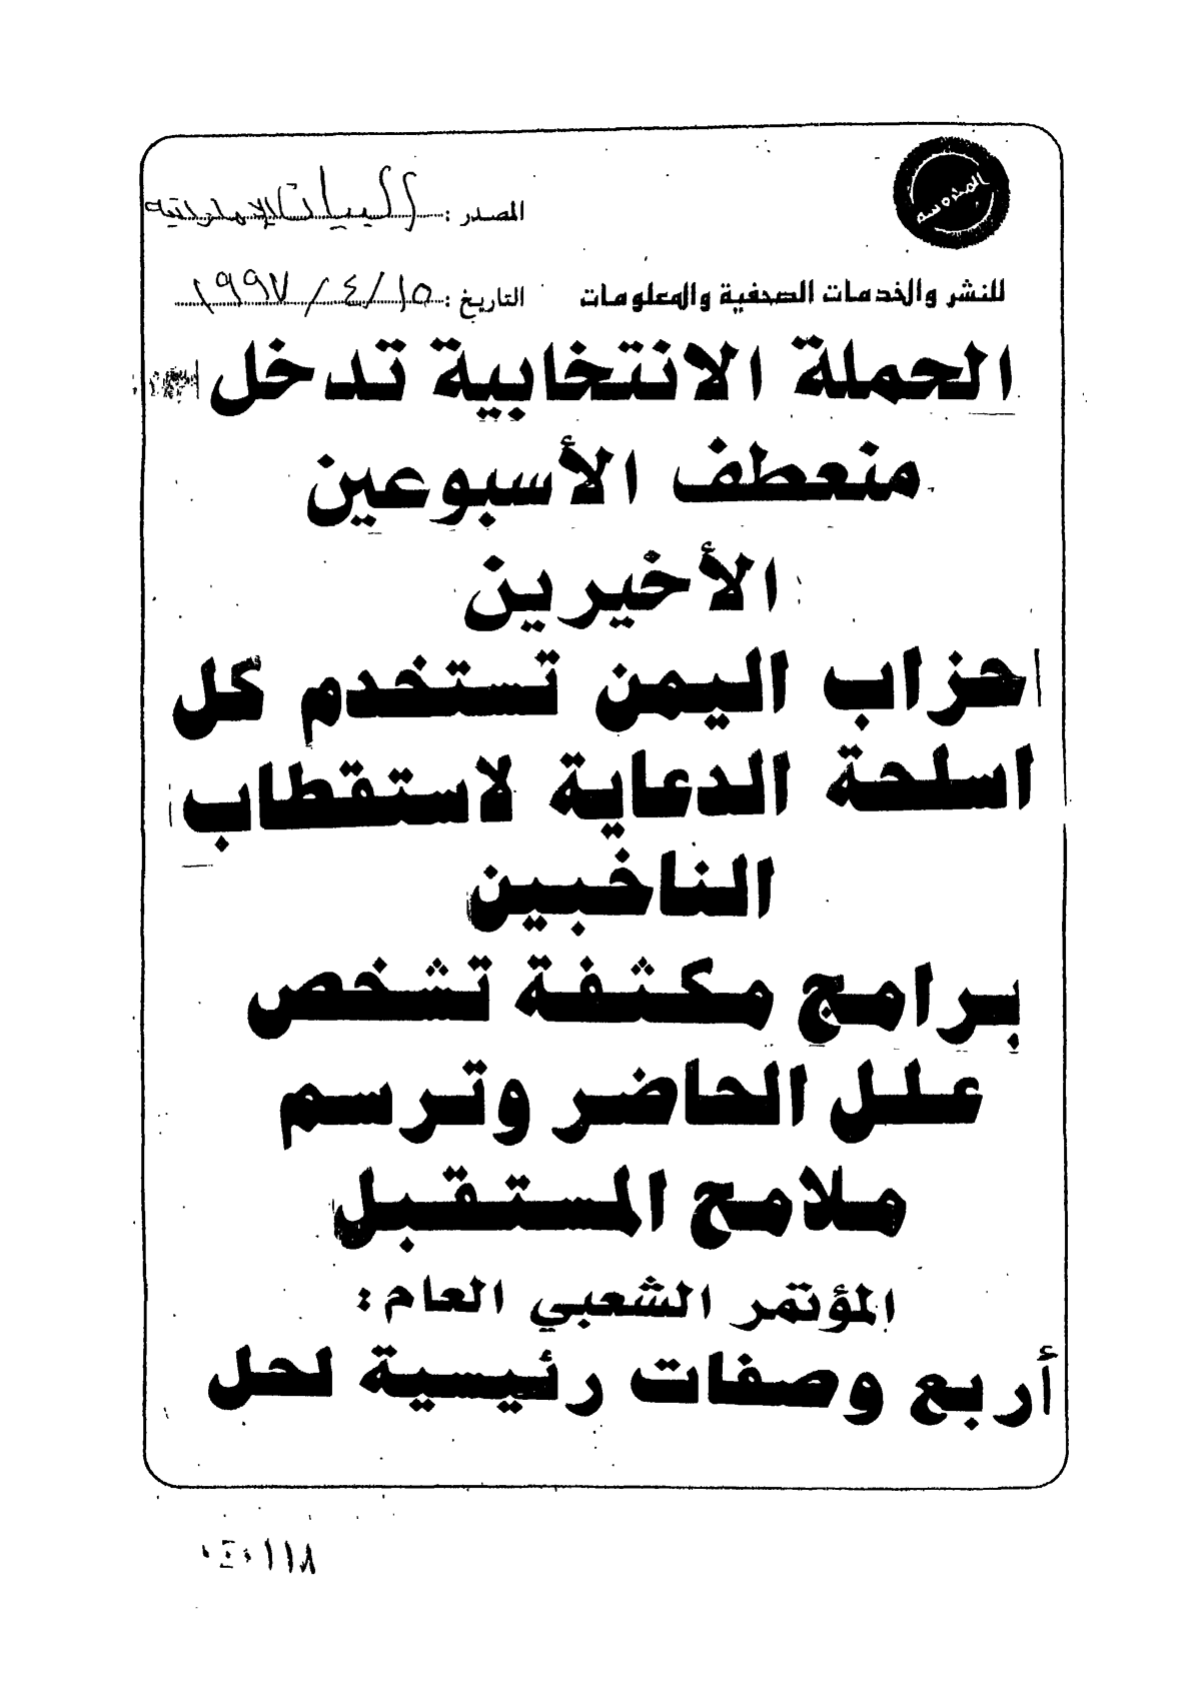 المحروسة
المصدر : البيان الإماراتية
للنشر والخدمات الصحفية والمعلومات
التاريخ : ١٩٩٧/٤/١٥
الحملة الانتخابية تدخل
منعطف الأسبوعين
الأخيرين
احزاب اليمن تستخدم كل
اسلحة الدعاية لاستقطاب
الناخبين
برامج مكثفة تشخص
علل الحاضر وترسم
ملامح المستقبل
المؤتمر الشعبي العام :
أربع وصفات رئيسية لحل